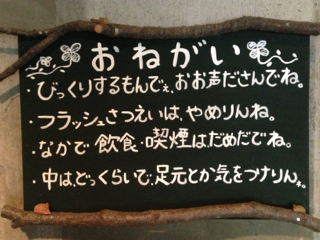 おねがい
・びっくりするもんでぇ、おお声ださんでね。
・フラッシュさつえいは、やめりんね。
・なかで飲食・喫煙はだめだでね。
・中は、どっくらいで、足元とか気をつけりん。